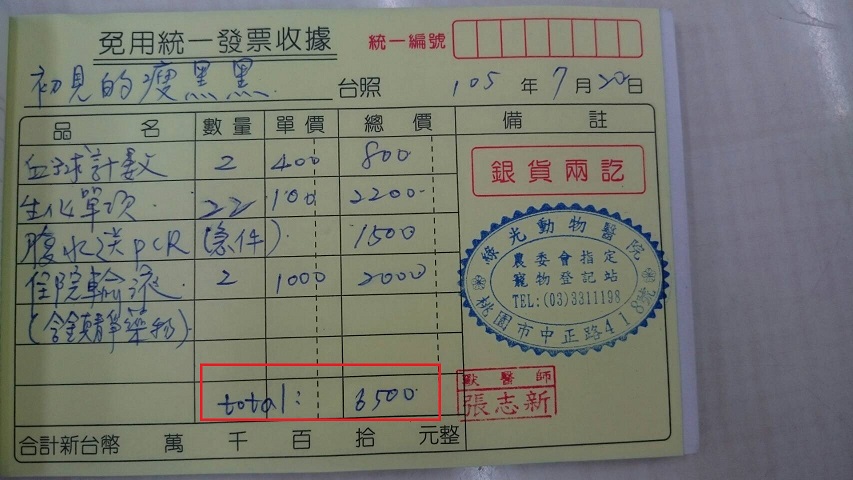 免用統一發票收據
統一編號
初見的瘦黑黑 台照 105 年 7 月 20 日
品名 數量 單價 總價 備註
血球計數 2 400 800
生化單項 22 100 2200
腹水送PCR (急件) 1500
住院輸液 2 1000 2000
(含鎮靜藥物)
total: 6500
合計新台幣 萬 千 百 拾 元整
銀貨兩訖
綠光動物醫院
農委會指定
寵物登記站
TEL:(03)3311198
桃園市中正路418號
獸醫師
張志新